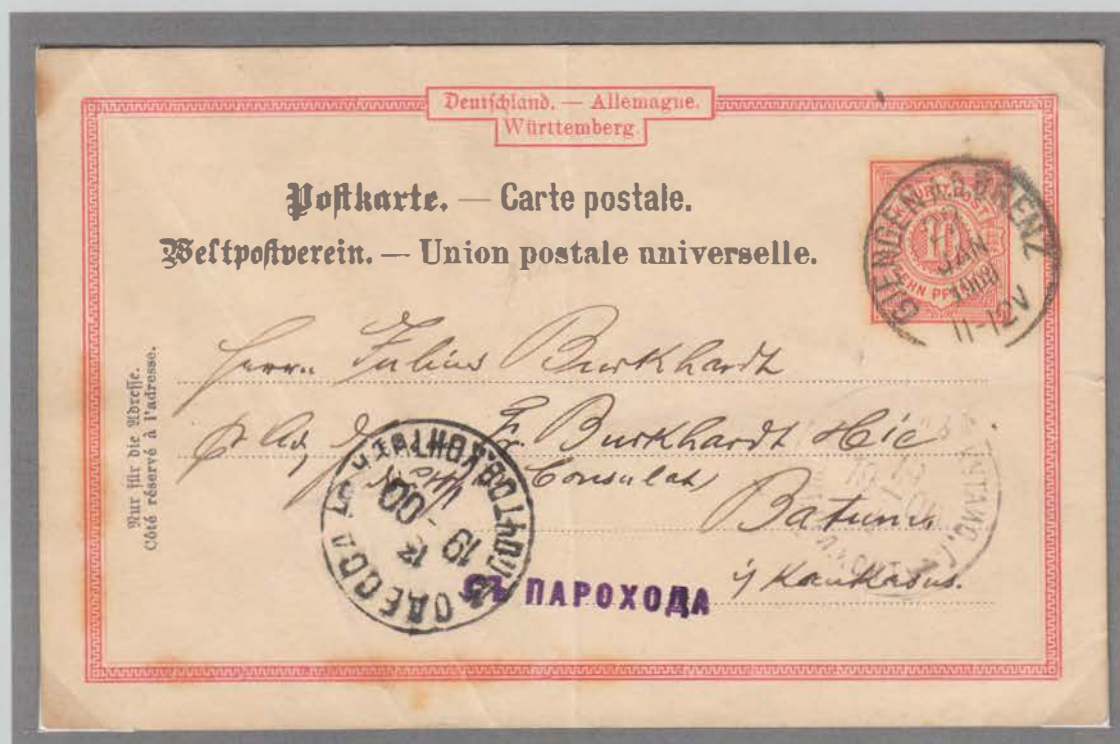 Deutschland. — Allemagne.
Württemberg
Postkarte. — Carte postale.
Weltpostverein. — Union postale universelle.
GIENGEN A. BRENZ
JAN
1900
11-12V
Nur für die Adresse.
Côté réservé à l'adresse.
Herrn Julius Burkhardt
Fr. Burkhardt Hic
Consulat
Batum
Kaukasus.
ОДЕССА
19
00
СЪ ПАРОХОДА